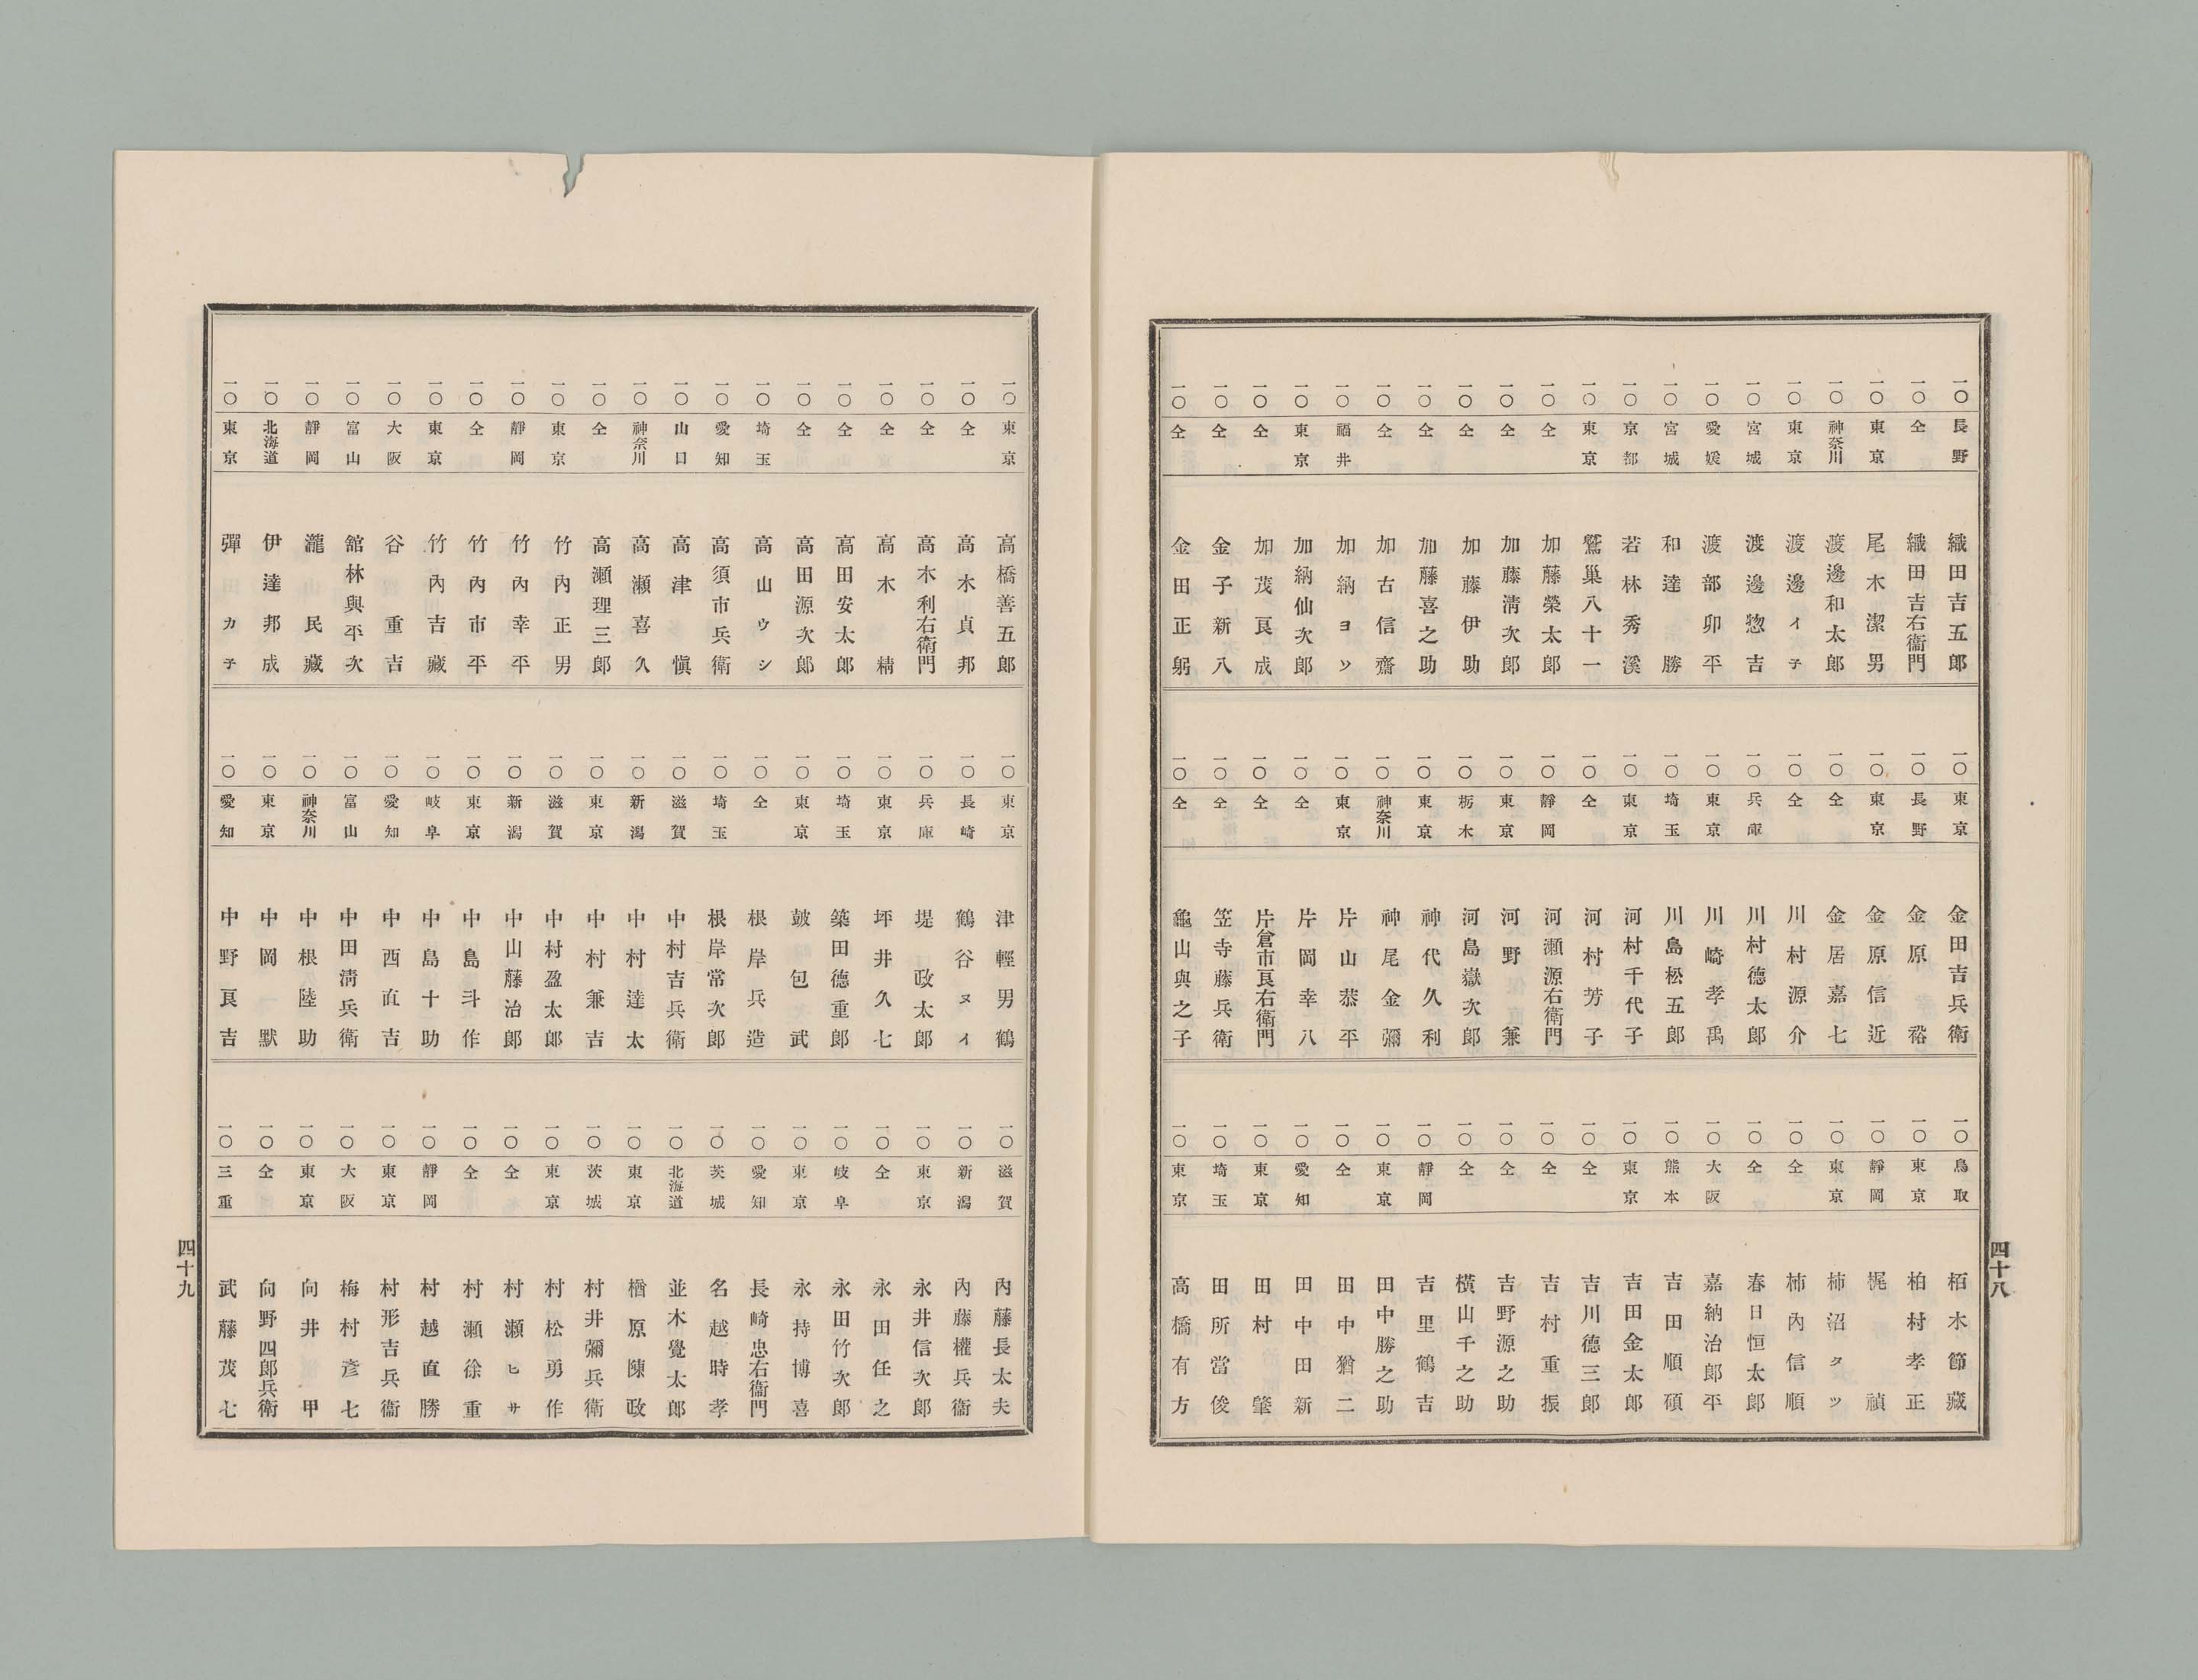 一〇 長野 織田吉五郎
一〇 仝 織田吉右衞門
一〇 東京 尾木潔男
一〇 神奈川 渡邊和太郎
一〇 東京 渡邊イテ
一〇 宮城 渡邊惣吉
一〇 愛媛 渡部卯平
一〇 宮城 和達勝
一〇 京都 若林秀溪
一〇 東京 鷲巢八十一
一〇 仝 加藤榮太郎
一〇 仝 加藤淸次郎
一〇 仝 加藤伊助
一〇 仝 加藤喜之助
一〇 仝 加古信齋
一〇 福井 加納ヨソ
一〇 東京 加納仙次郎
一〇 仝 加茂良成
一〇 仝 金子新八
一〇 仝 金田正躬
一〇 東京 金田吉兵衛
一〇 長野 金原裕
一〇 東京 金原信近
一〇 仝 金居嘉七
一〇 仝 川村源介
一〇 兵庫 川村德太郎
一〇 東京 川崎孝禹
一〇 埼玉 川島松五郎
一〇 東京 河村千代子
一〇 仝 河村芳子
一〇 靜岡 河瀬源右衛門
一〇 東京 河野兼
一〇 栃木 河島嶽次郎
一〇 東京 神代久利
一〇 神奈川 神尾金彌
一〇 東京 片山恭平
一〇 仝 片岡幸八
一〇 仝 片倉市良右衛門
一〇 仝 笠寺藤兵衛
一〇 仝 龜山與之子
一〇 鳥取 栢木節藏
一〇 東京 柏村孝正
一〇 靜岡 梶禎
一〇 東京 柿沼タツ
一〇 仝 柿內信順
一〇 仝 春日恒太郎
一〇 大阪 嘉納治郎平
一〇 熊本 吉田順碩
一〇 東京 吉田金太郎
一〇 仝 吉川德三郎
一〇 仝 吉村重振
一〇 仝 吉野源之助
一〇 仝 橫山千之助
一〇 靜岡 吉里鶴吉
一〇 東京 田中勝之助
一〇 仝 田中猶二
一〇 愛知 田中田新
一〇 東京 田村肇
一〇 埼玉 田所當俊
一〇 東京 高橋有方
四十八
一〇 東京 高橋善五郎
一〇 仝 高木貞邦
一〇 仝 高木利右衛門
一〇 仝 高木精
一〇 仝 高田安太郎
一〇 仝 高田源次郎
一〇 埼玉 高山ウシ
一〇 愛知 高須市兵衛
一〇 山口 高津愼
一〇 神奈川 高瀬喜久
一〇 仝 高瀬理三郎
一〇 東京 竹內正男
一〇 靜岡 竹內幸平
一〇 仝 竹內市平
一〇 東京 竹內吉藏
一〇 大阪 谷重吉
一〇 富山 舘林與平次
一〇 靜岡 瀧民藏
一〇 北海道 伊達邦成
一〇 東京 彈カチ
一〇 東京 津輕男鶴
一〇 長崎 鶴谷ヌイ
一〇 兵庫 堤政太郎
一〇 東京 坪井久七
一〇 埼玉 築田德重郎
一〇 東京 皷包武
一〇 仝 根岸兵造
一〇 埼玉 根岸常次郎
一〇 滋賀 中村吉兵衛
一〇 新潟 中村達太
一〇 東京 中村兼吉
一〇 滋賀 中村盈太郎
一〇 新潟 中山藤治郎
一〇 東京 中島斗作
一〇 岐阜 中島十助
一〇 愛知 中西直吉
一〇 富山 中田淸兵衛
一〇 神奈川 中根陸助
一〇 東京 中岡默
一〇 愛知 中野良吉
一〇 滋賀 內藤長太夫
一〇 新潟 內藤權兵衞
一〇 東京 永井信次郎
一〇 仝 永田任之
一〇 岐阜 永田竹次郎
一〇 東京 永持博喜
一〇 愛知 長崎忠右衞門
一〇 茨城 名越時孝
一〇 北海道 並木覺太郎
一〇 東京 楢原陳政
一〇 茨城 村井彌兵衛
一〇 東京 村松勇作
一〇 仝 村瀬ヒサ
一〇 仝 村瀬徐重
一〇 靜岡 村越直勝
一〇 東京 村形吉兵衞
一〇 大阪 梅村彥七
一〇 東京 向井甲
一〇 仝 向野四郎兵衛
一〇 三重 武藤茂七
四十九